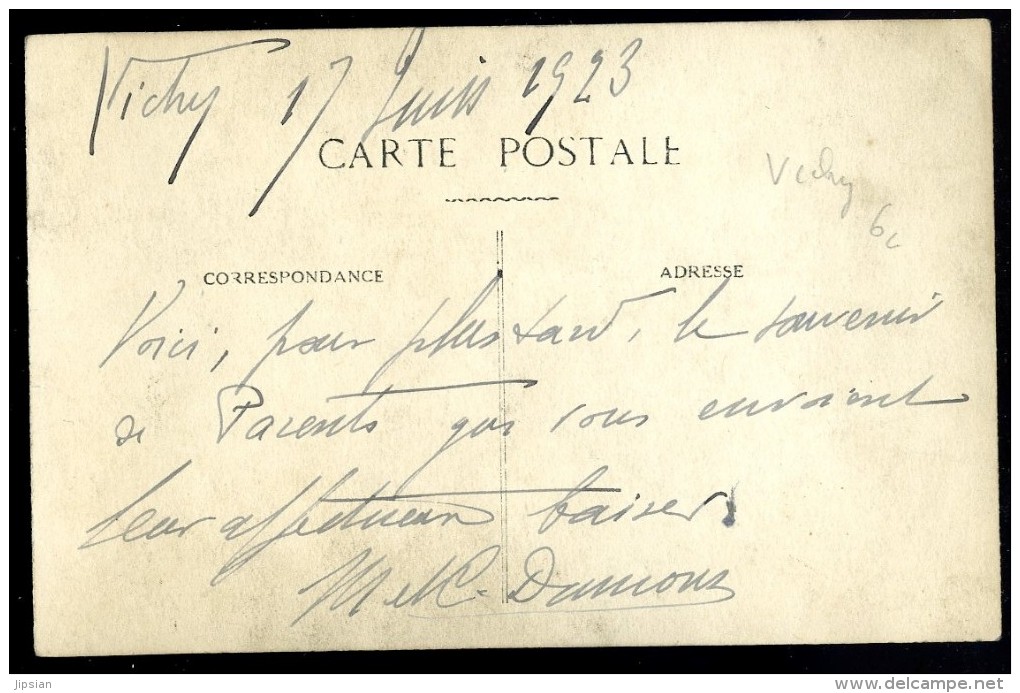 Vichy 17 Juin 1923
CARTE POSTALE
Vichy
6c
CORRESPONDANCE
ADRESSE
Voici, pour plus tard, le souvenir
de Parents qui vous envoient
leur affectueux baiser.
M et M. Dumont
jipsian
delcampe.net